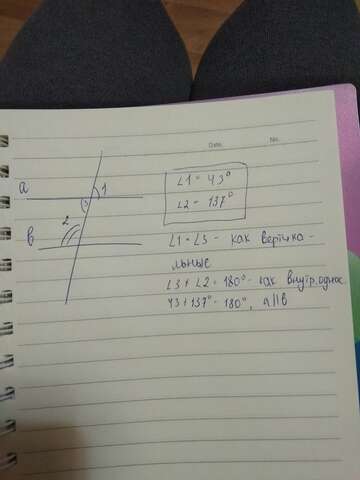 Date
No.
a
1
3
2
b
∠1 = 43°
∠2 = 137°
∠1 = ∠3 - как вертика-
льные
∠3 + ∠2 = 180° - как внутр. однос.
43 + 137° = 180°, a||b